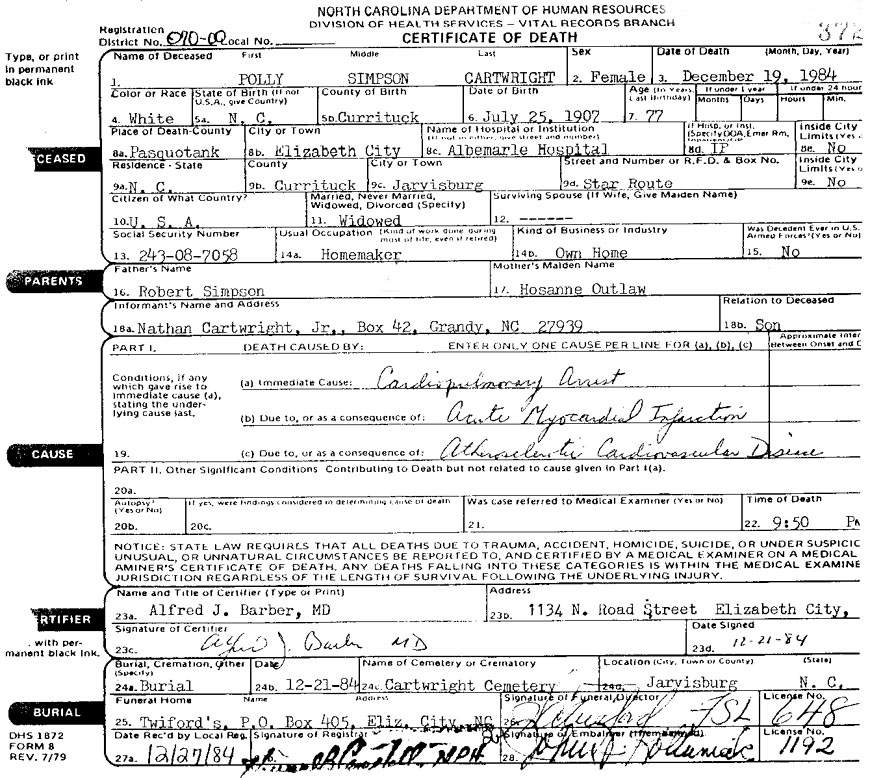 NORTH CAROLINA DEPARTMENT OF HUMAN RESOURCES
DIVISION OF HEALTH SERVICES – VITAL RECORDS BRANCH
CERTIFICATE OF DEATH
372
Registration District No. 070-00 Local No.
Type, or print in permanent black ink
Name of Deceased First Middle Last Sex Date of Death (Month, Day, Year)
1. POLLY SIMPSON CARTWRIGHT 2. Female 3. December 19, 1984
Color or Race State of Birth (If not U.S.A., give Country) County of Birth Date of Birth Age (In Years, Last Birthday) If under 1 year Months Days If under 24 hour Hours Min.
4. White 5a. N. C. 5b. Currituck 6. July 25, 1907 7. 77
Place of Death-County City or Town Name of Hospital or Institution (If not in either, give street and number) If Hosp. or Inst. (Specify DOA, Emer Rm, Inside City Limits (Yes o
8a. Pasquotank 8b. Elizabeth City 8c. Albemarle Hospital 8d. IP 8e. No
CEASED
Residence - State County City or Town Street and Number or R.F.D. & Box No. Inside City Limits (Yes o
9a. N. C. 9b. Currituck 9c. Jarvisburg 9d. Star Route 9e. No
Citizen of What Country? Married, Never Married, Widowed, Divorced (Specify) Surviving Spouse (If Wife, Give Maiden Name)
10. U. S. A. 11. Widowed 12. ------
Social Security Number Usual Occupation (Kind of work done during most of life, even if retired) Kind of Business or Industry Was Decedent Ever in U.S. Armed Forces? (Yes or No)
13. 243-08-7058 14a. Homemaker 14b. Own Home 15. No
PARENTS
Father's Name Mother's Maiden Name
16. Robert Simpson 17. Hosanne Outlaw
Informant's Name and Address Relation to Deceased
18a. Nathan Cartwright, Jr., Box 42, Grandy, NC 27939 18b. Son
PART I. DEATH CAUSED BY: ENTER ONLY ONE CAUSE PER LINE FOR (a), (b), (c) Approximate Inter Between Onset and D
Conditions, if any which gave rise to immediate cause (a), stating the underlying cause last.
(a) Immediate Cause: Cardiopulmonary Arrest
(b) Due to, or as a consequence of: Acute Myocardial Infarction
CAUSE
19. (c) Due to, or as a consequence of: Atherosclerotic Cardiovascular Disease
PART II. Other Significant Conditions Contributing to Death but not related to cause given in Part I(a).
20a.
Autopsy? (Yes or No) If yes, were findings considered in determining cause of death Was case referred to Medical Examiner (Yes or No) Time of Death
20b. 20c. 21. 22. 9:50 PM
NOTICE: STATE LAW REQUIRES THAT ALL DEATHS DUE TO TRAUMA, ACCIDENT, HOMICIDE, SUICIDE, OR UNDER SUSPICIO
UNUSUAL, OR UNNATURAL CIRCUMSTANCES BE REPORTED TO, AND CERTIFIED BY A MEDICAL EXAMINER ON A MEDICAL
AMINER'S CERTIFICATE OF DEATH. ANY DEATHS FALLING INTO THESE CATEGORIES IS WITHIN THE MEDICAL EXAMINE
JURISDICTION REGARDLESS OF THE LENGTH OF SURVIVAL FOLLOWING THE UNDERLYING INJURY.
Name and Title of Certifier (Type or Print) Address
23a. Alfred J. Barber, MD 23b. 1134 N. Road Street Elizabeth City,
ERTIFIER
Signature of Certifier Date Signed
23c. Alfred J. Barber MD 23d. 12-21-84
. with permanent black ink.
Burial, Cremation, Other (Specify) Date Name of Cemetery or Crematory Location (City, Town or County) (State)
24a. Burial 24b. 12-21-84 24c. Cartwright Cemetery 24d. Jarvisburg N. C.
BURIAL
Funeral Home Name Address Signature of Funeral Director License No.
25. Twiford's, P.O. Box 405, Eliz. City, NC 26. FSL 648
Date Rec'd by Local Reg. Signature of Registrar Signature of Embalmer (If embalmed) License No.
27a. 12/27/84 MPH 28. 1192
DHS 1872
FORM 8
REV. 7/79